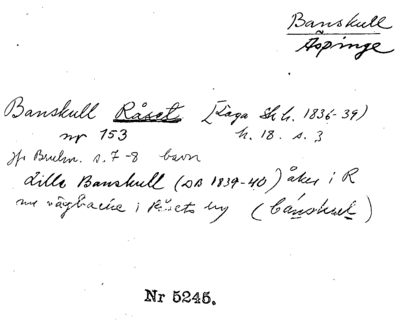 Banskull
Äspinge
Banskull Råset [Laga Sk h. 1836-39)
nr 153 h. 18. s. 3
jfr Beskr. s. 7-8
Lille Banskull (DB 1839-40) åker i R
vägbacke i Råsets by (bánskuł)
Nr 5245.